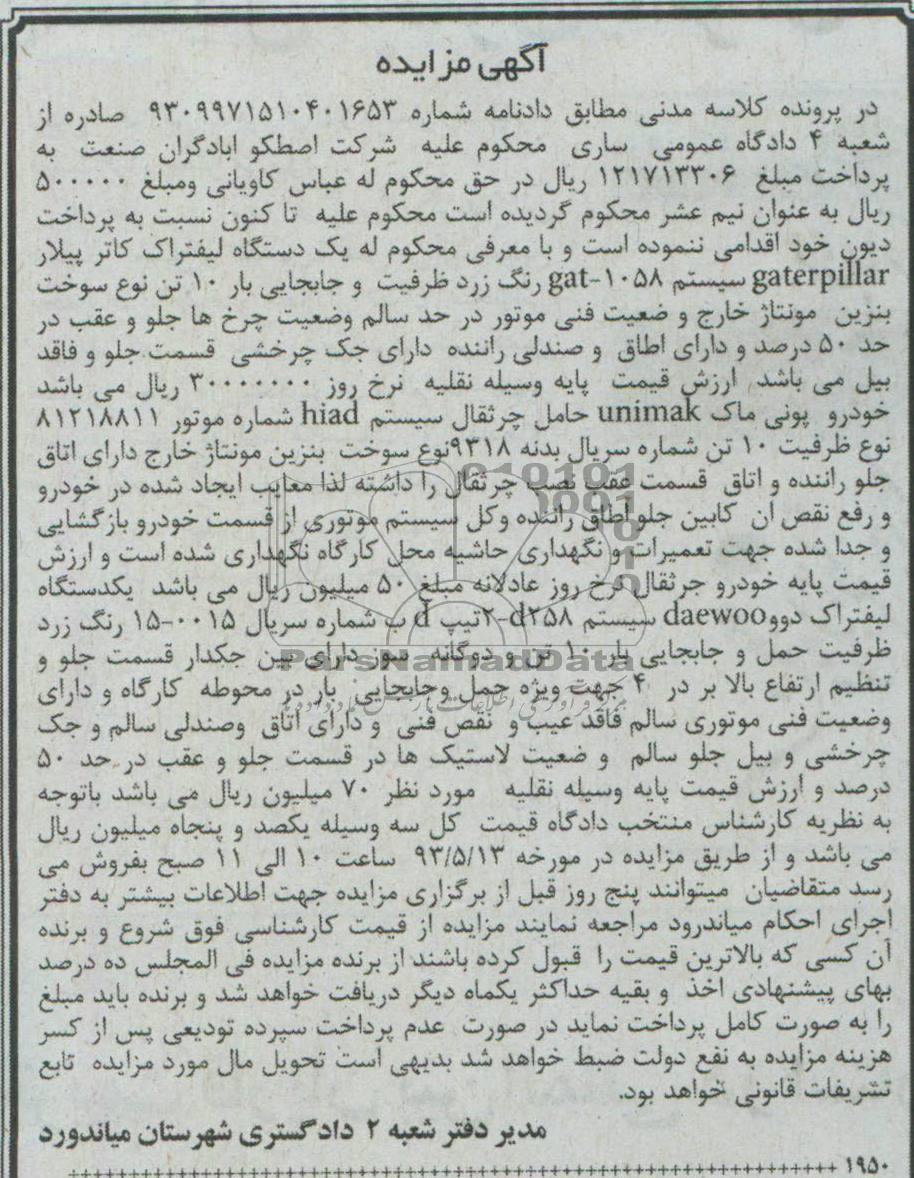 آگهی مزایده
در پرونده کلاسه مدنی مطابق دادنامه شماره ۹۳۰۹۹۷۱۵۱۰۴۰۱۶۵۳ صادره از
شعبه ۴ دادگاه عمومی ساری محکوم علیه شرکت اصطکو ابادگران صنعت به
پرداخت مبلغ ۱۲۱۷۱۳۳۰۶ ریال در حق محکوم له عباس کاویانی ومبلغ ۵۰۰۰۰۰
ریال به عنوان نیم عشر محکوم گردیده است محکوم علیه تا کنون نسبت به پرداخت
دیون خود اقدامی ننموده است و با معرفی محکوم له یک دستگاه لیفتراک کاتر پیلار
gaterpillar سیستم gat-۱۰۵۸ رنگ زرد ظرفیت و جابجایی بار ۱۰ تن نوع سوخت
بنزین مونتاژ خارج و ضعیت فنی موتور در حد سالم وضعیت چرخ ها جلو و عقب در
حد ۵۰ درصد و دارای اطاق و صندلی راننده دارای جک چرخشی قسمت جلو و فاقد
بیل می باشد ارزش قیمت پایه وسیله نقلیه نرخ روز ۳۰۰۰۰۰۰۰ ریال می باشد
خودرو یونی ماک unimak حامل چرثقال سیستم hiad شماره موتور ۸۱۲۱۸۸۱۱
نوع ظرفیت ۱۰ تن شماره سریال بدنه ۹۳۱۸نوع سوخت بنزین مونتاژ خارج دارای اتاق
جلو راننده و اتاق قسمت عقب نصب جرثقال را داشته لذا معایب ایجاد شده در خودرو
و رفع نقص ان کابین جلو اطاق راننده وکل سیستم موتوری از قسمت خودرو بازگشایی
و جدا شده جهت تعمیرات و نگهداری حاشیه محل کارگاه نگهداری شده است و ارزش
قیمت پایه خودرو جرثقال نرخ روز عادلانه مبلغ ۵۰ میلیون ریال می باشد یکدستگاه
لیفتراک دووdaewoo سیستم d۲۵۸-۲تیپ d ب شماره سریال ۰۰۱۵-۱۵ رنگ زرد
ظرفیت حمل و جابجایی بار ۱۰ تن و دوگانه سوز دارای بین جکدار قسمت جلو و
تنظیم ارتفاع بالا بر در ۴ جهت ویژه حمل وجابجایی بار در محوطه کارگاه و دارای
وضعیت فنی موتوری سالم فاقد عیب و نقص فنی و دارای اتاق وصندلی سالم و جک
چرخشی و بیل جلو سالم و ضعیت لاستیک ها در قسمت جلو و عقب در حد ۵۰
درصد و ارزش قیمت پایه وسیله نقلیه مورد نظر ۷۰ میلیون ریال می باشد باتوجه
به نظریه کارشناس منتخب دادگاه قیمت کل سه وسیله یکصد و پنجاه میلیون ریال
می باشد و از طریق مزایده در مورخه ۹۳/۵/۱۳ ساعت ۱۰ الی ۱۱ صبح بفروش می
رسد متقاضیان میتوانند پنج روز قبل از برگزاری مزایده جهت اطلاعات بیشتر به دفتر
اجرای احکام میاندرود مراجعه نمایند مزایده از قیمت کارشناسی فوق شروع و برنده
آن کسی که بالاترین قیمت را قبول کرده باشند از برنده مزایده فی المجلس ده درصد
بهای پیشنهادی اخذ و بقیه حداکثر یکماه دیگر دریافت خواهد شد و برنده باید مبلغ
را به صورت کامل پرداخت نماید در صورت عدم پرداخت سپرده تودیعی پس از کسر
هزینه مزایده به نفع دولت ضبط خواهد شد بدیهی است تحویل مال مورد مزایده تابع
تشریفات قانونی خواهد بود.
مدیر دفتر شعبه ۲ دادگستری شهرستان میاندورد
۱۹۵۰
ParsNamadData